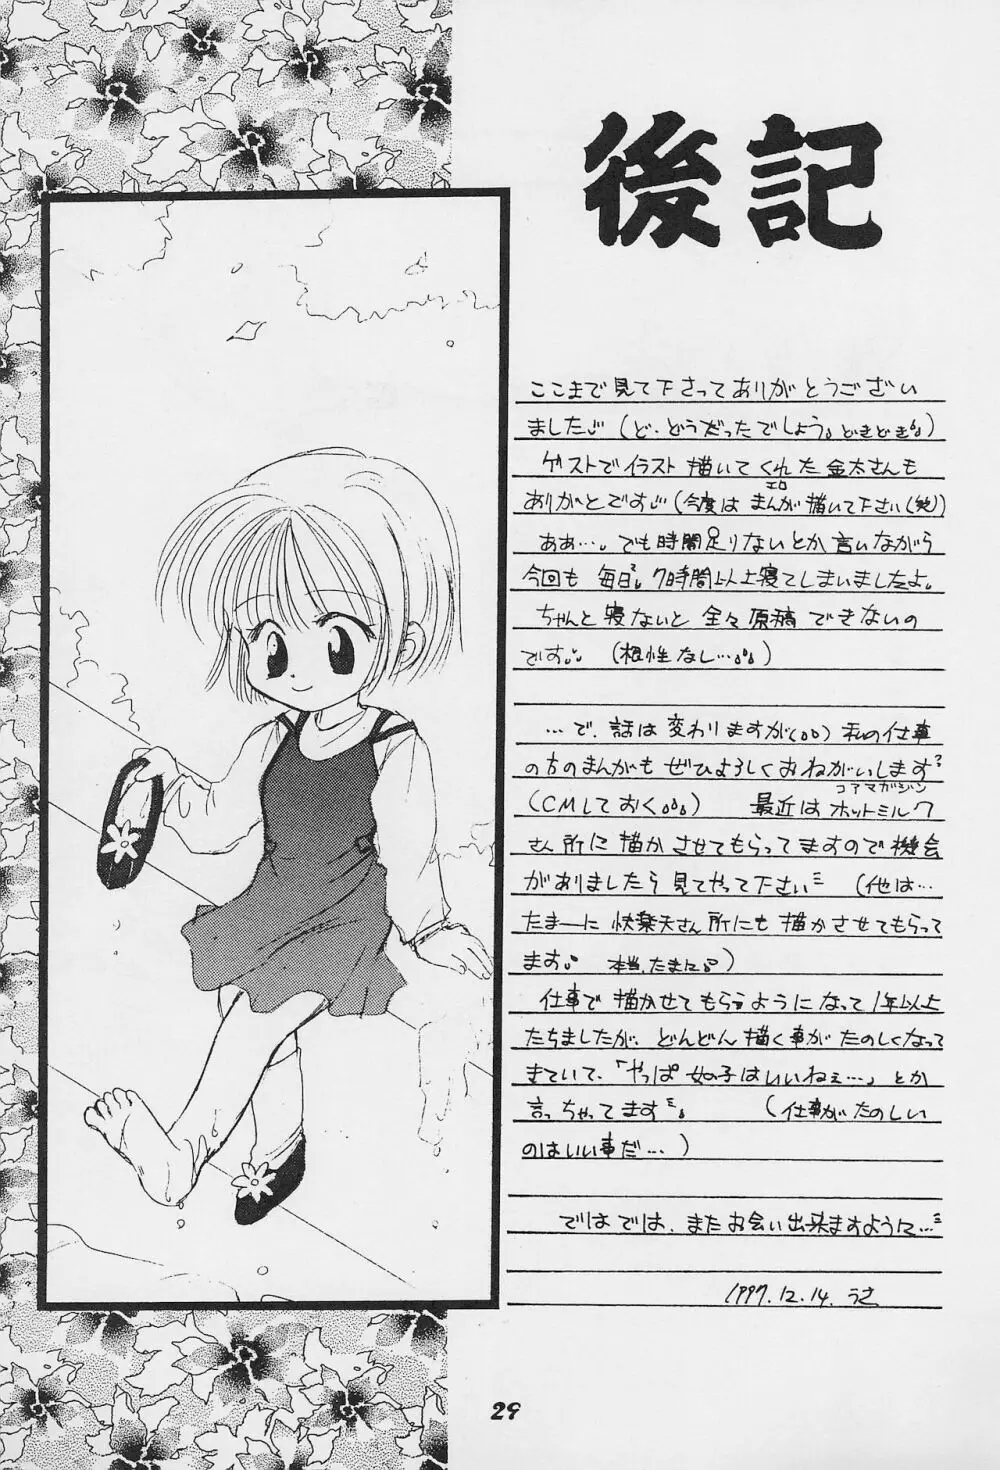 後記
ここまで見て下さってありがとうござい
ました (ど、どうだったでしょう。どきどき)
ゲストでイラスト描いてくれた金太さんも
エロ
ありがとです (今度は まんが描いて下さい(笑))
ああ…。でも時間足りないとか言いながら
今回も 毎日 7時間以上寝てしまいましたよ。
ちゃんと寝ないと 全々原稿できないの
です (根性なし…)
…で、話は変わりますが 私の仕事
の方のまんがも ぜひよろしくおねがいします
コアマガジン
(CMしておく) 最近は ホットミルク
さん所に描かさせてもらってますので機会
がありましたら見てやって下さい (他は…
たまーに 快楽天さん所にも描かさせてもらって
ます 本当、たまに)
仕事で描かせてもらうようになって1年以上
たちましたが、どんどん描く事がたのしくなって
きていて、「やっぱ女の子はいいねぇ…」とか
言っちゃてます。 (仕事がたのしい
のはいい事だ…)
ではでは、またお会い出来ますように…
1997.12.14. うさ
29